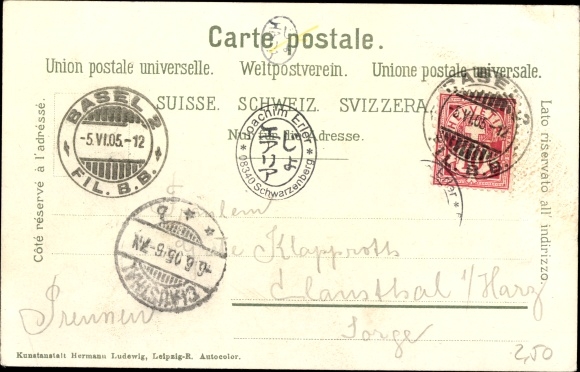 Carte postale.
Union postale universelle. Weltpostverein. Unione postale universale.
SUISSE. SCHWEIZ. SVIZZERA.
Nur für die Adresse.
Côté réservé à l'adresse.
Lato riservato all' indirizzo.
BASEL 2
-5.VI.05.-12
FIL. B.B.
Joachim Erler
しょ
エアリア
* 08340 Schwarzenberg *
BASEL 2
HELVETIA
CLAUSTHAL
6.6.05.6-7N.
Fräulein
Klapproth
Clausthal i/Harz
Sorge
2,50
Kunstanstalt Hermann Ludewig, Leipzig-R. Autocolor.